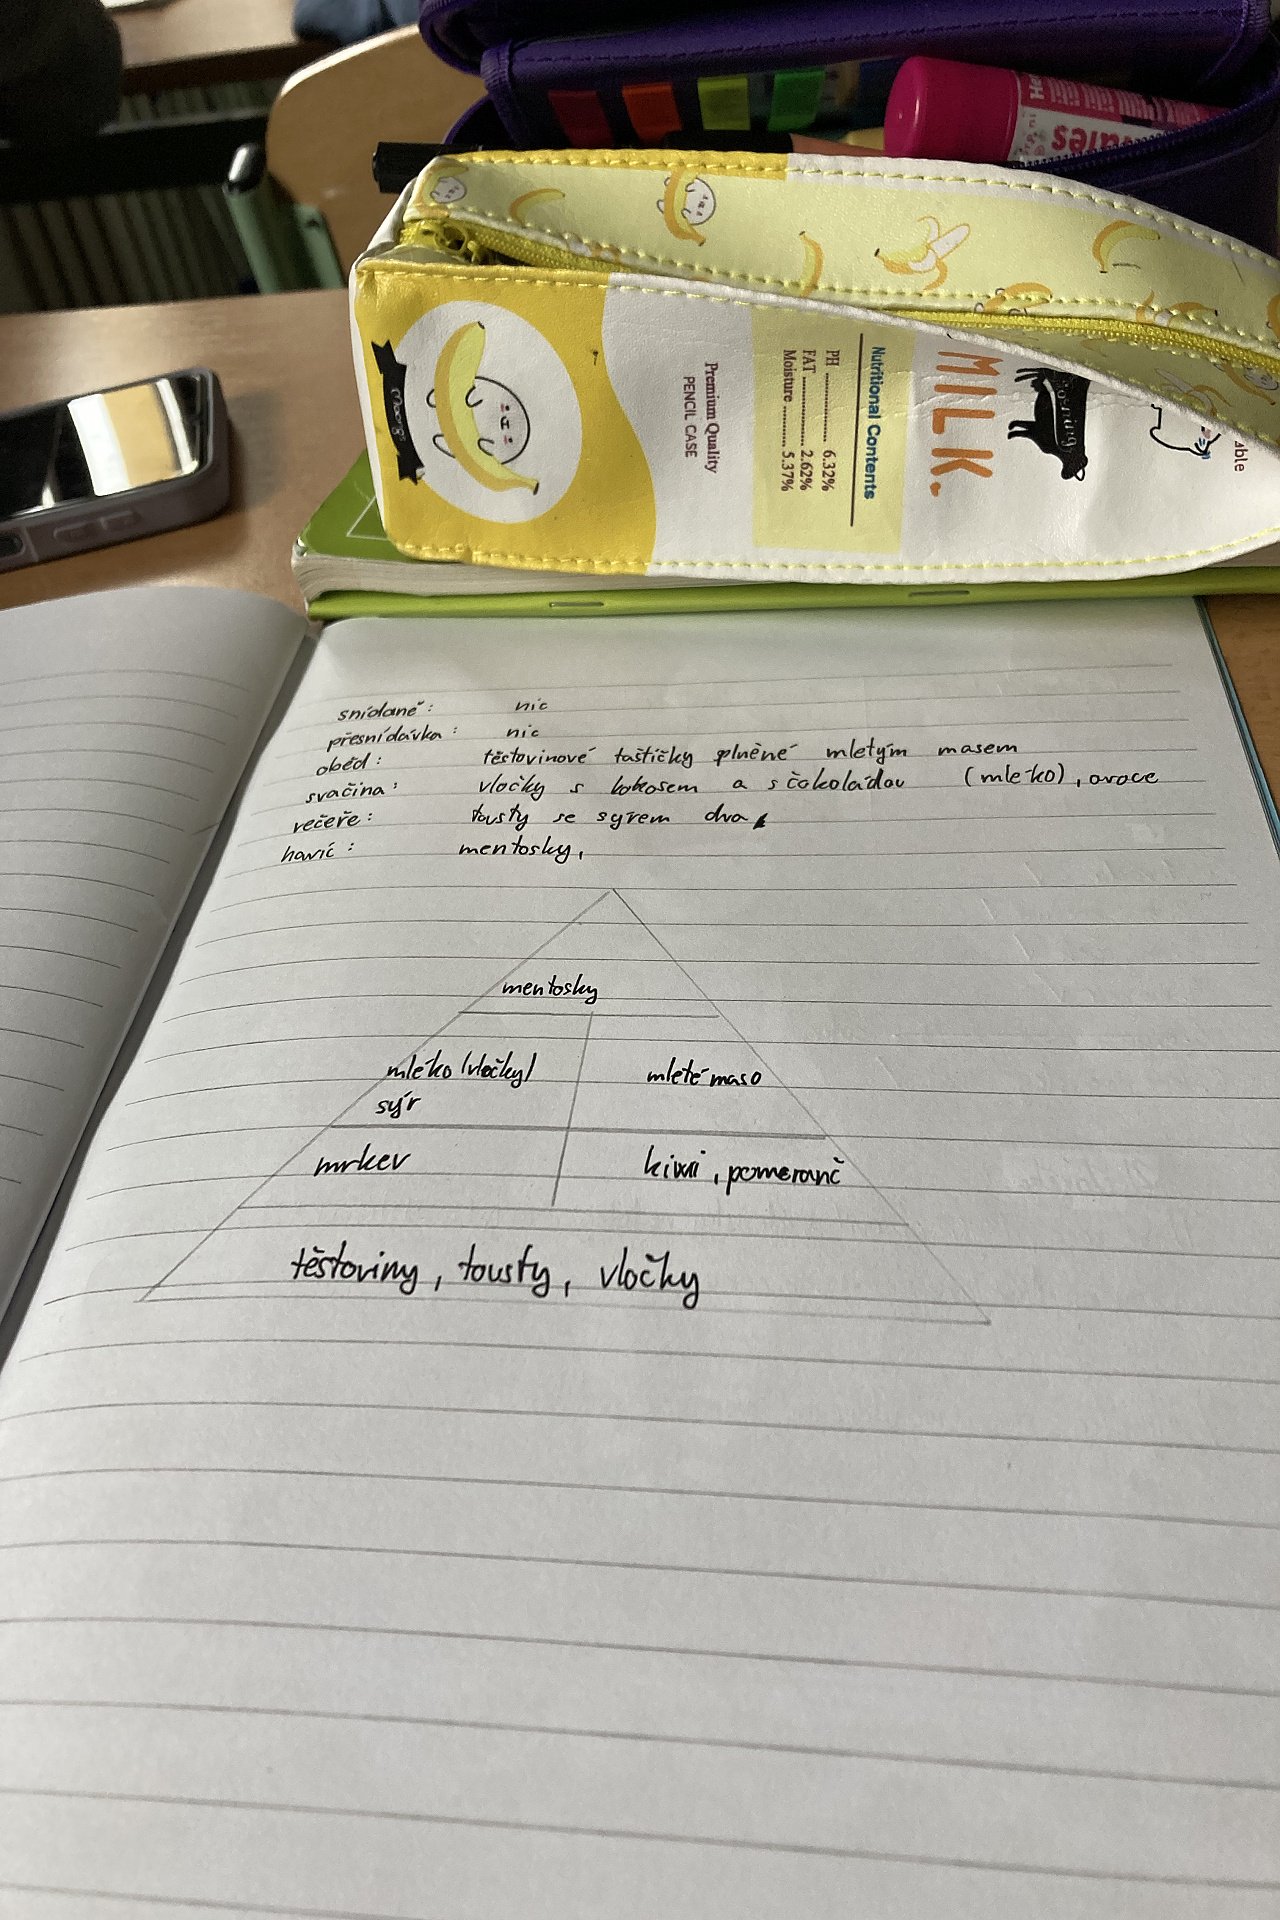 ules
MILK.
Morning
able
Nutritional Contents
PH ................ 6.32%
FAT ................ 2.62%
Moisture ............ 5.37%
Premium Quality
PENCIL CASE
snídaně: nic
přesnídávka: nic
oběd: těstovinové taštičky plněné mletým masem
svačina: vločky s kokosem a s čokoládou (mléko), ovoce
večeře: tousty se sýrem dva,
navíc: mentosky,
mentosky
mléko (vločky) mleté maso
sýr
mrkev kiwi, pomeranč
těstoviny, tousty, vločky